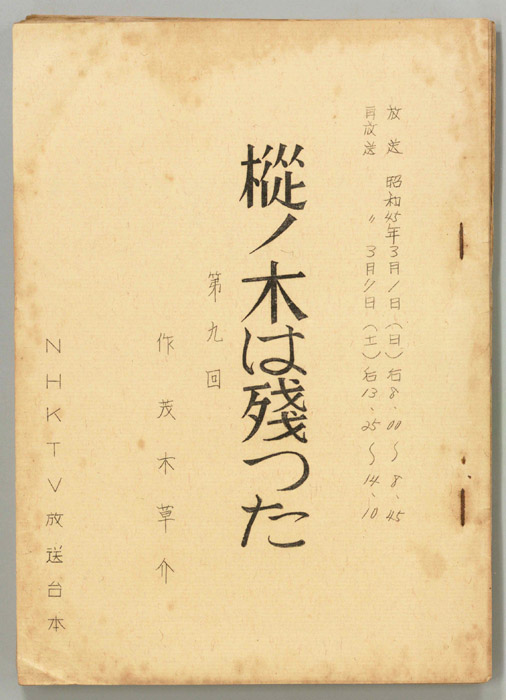 放送 昭和45年3月1日(日)后8、00〜8、45
再放送 〃 3月7日(土)后13、25〜14、10
樅ノ木は殘つた
第九回
作 茂木草介
NHKTV放送台本